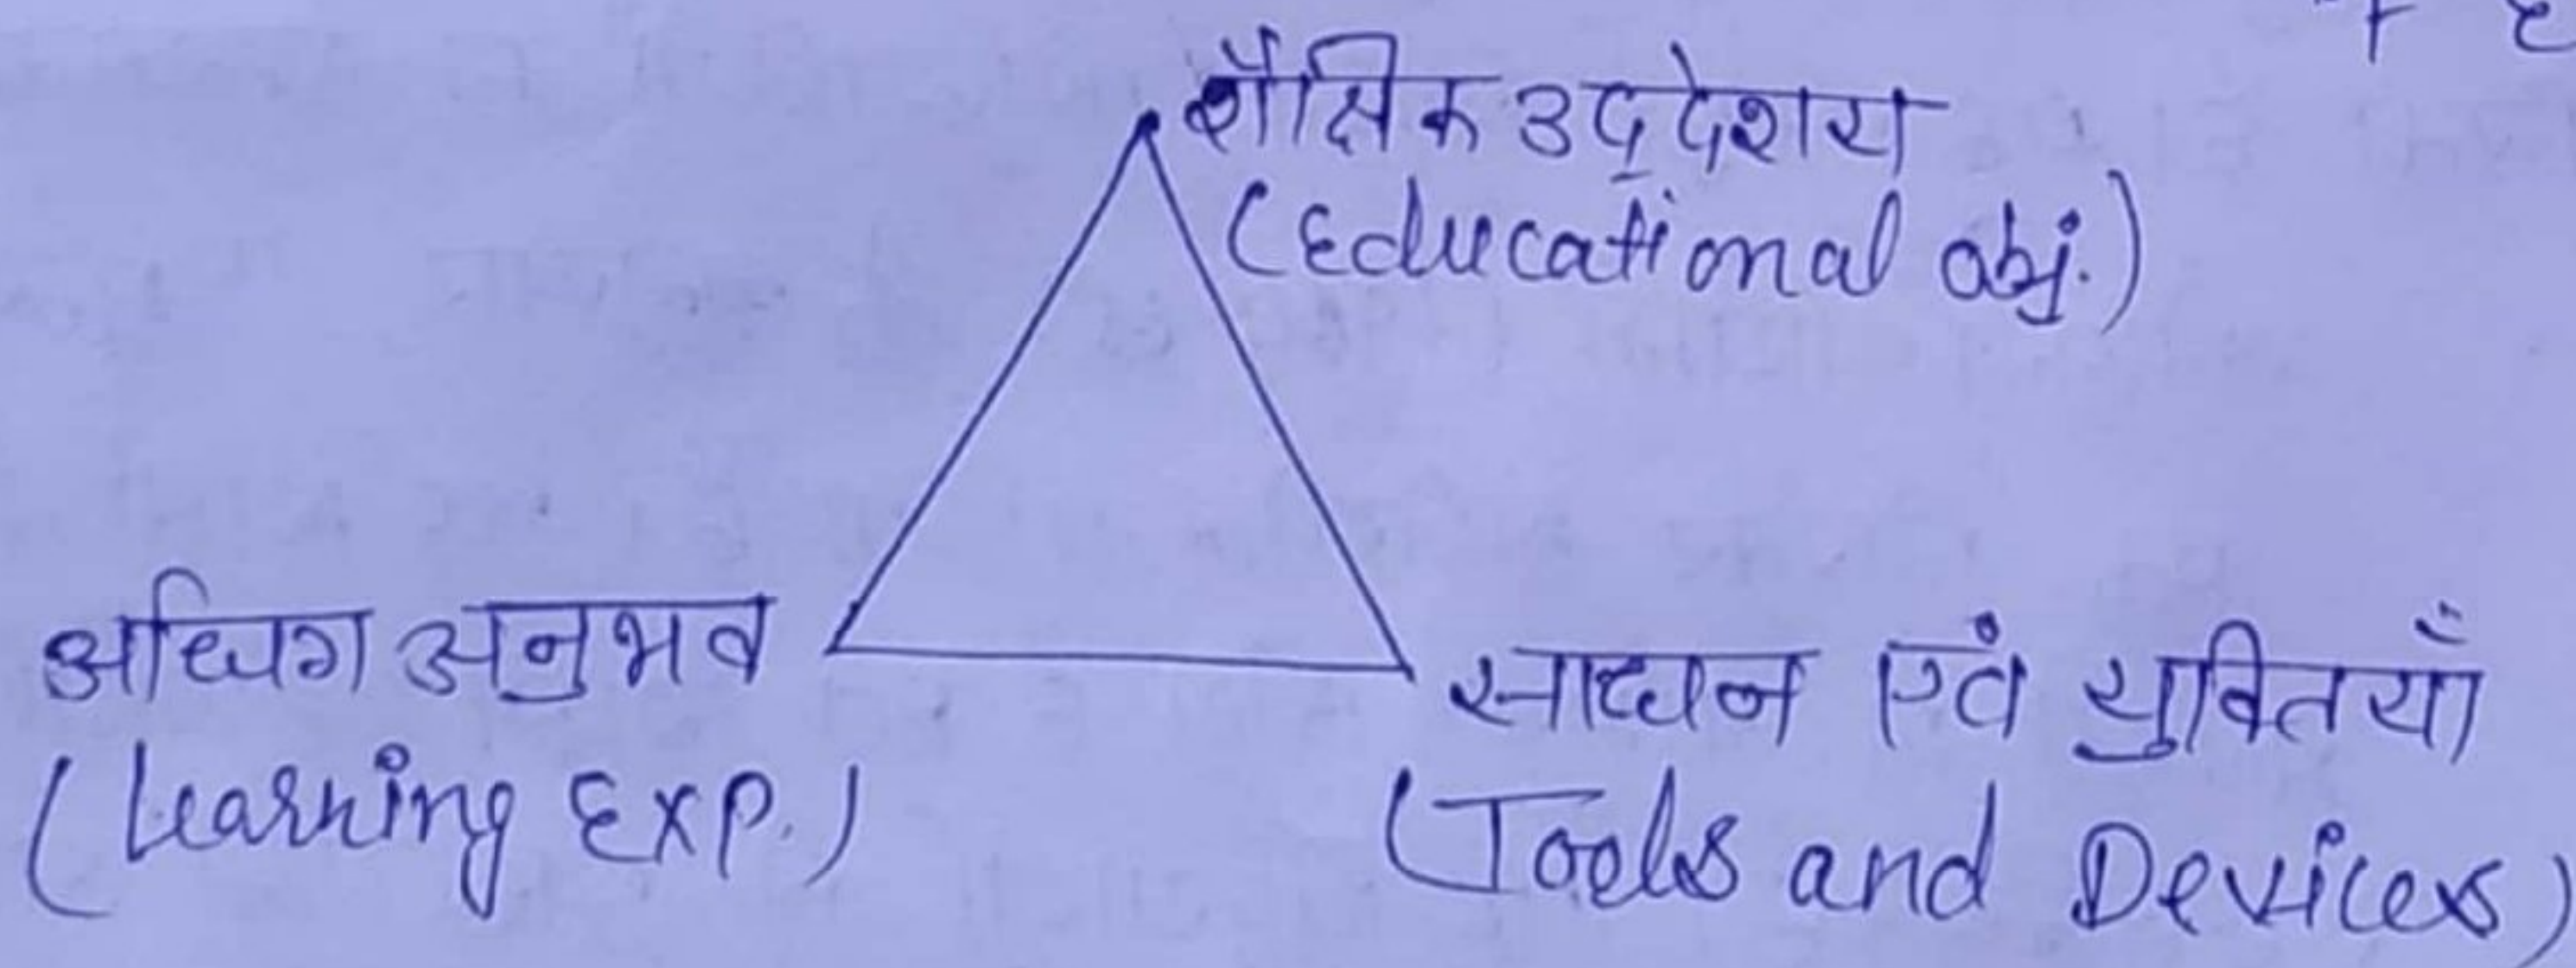 शैक्षिक उद्देशय
(Educational obj.)
अधिग अनुभव
(Learning Exp.)
साधन एवं युक्तियाँ
(Tools and Devices)